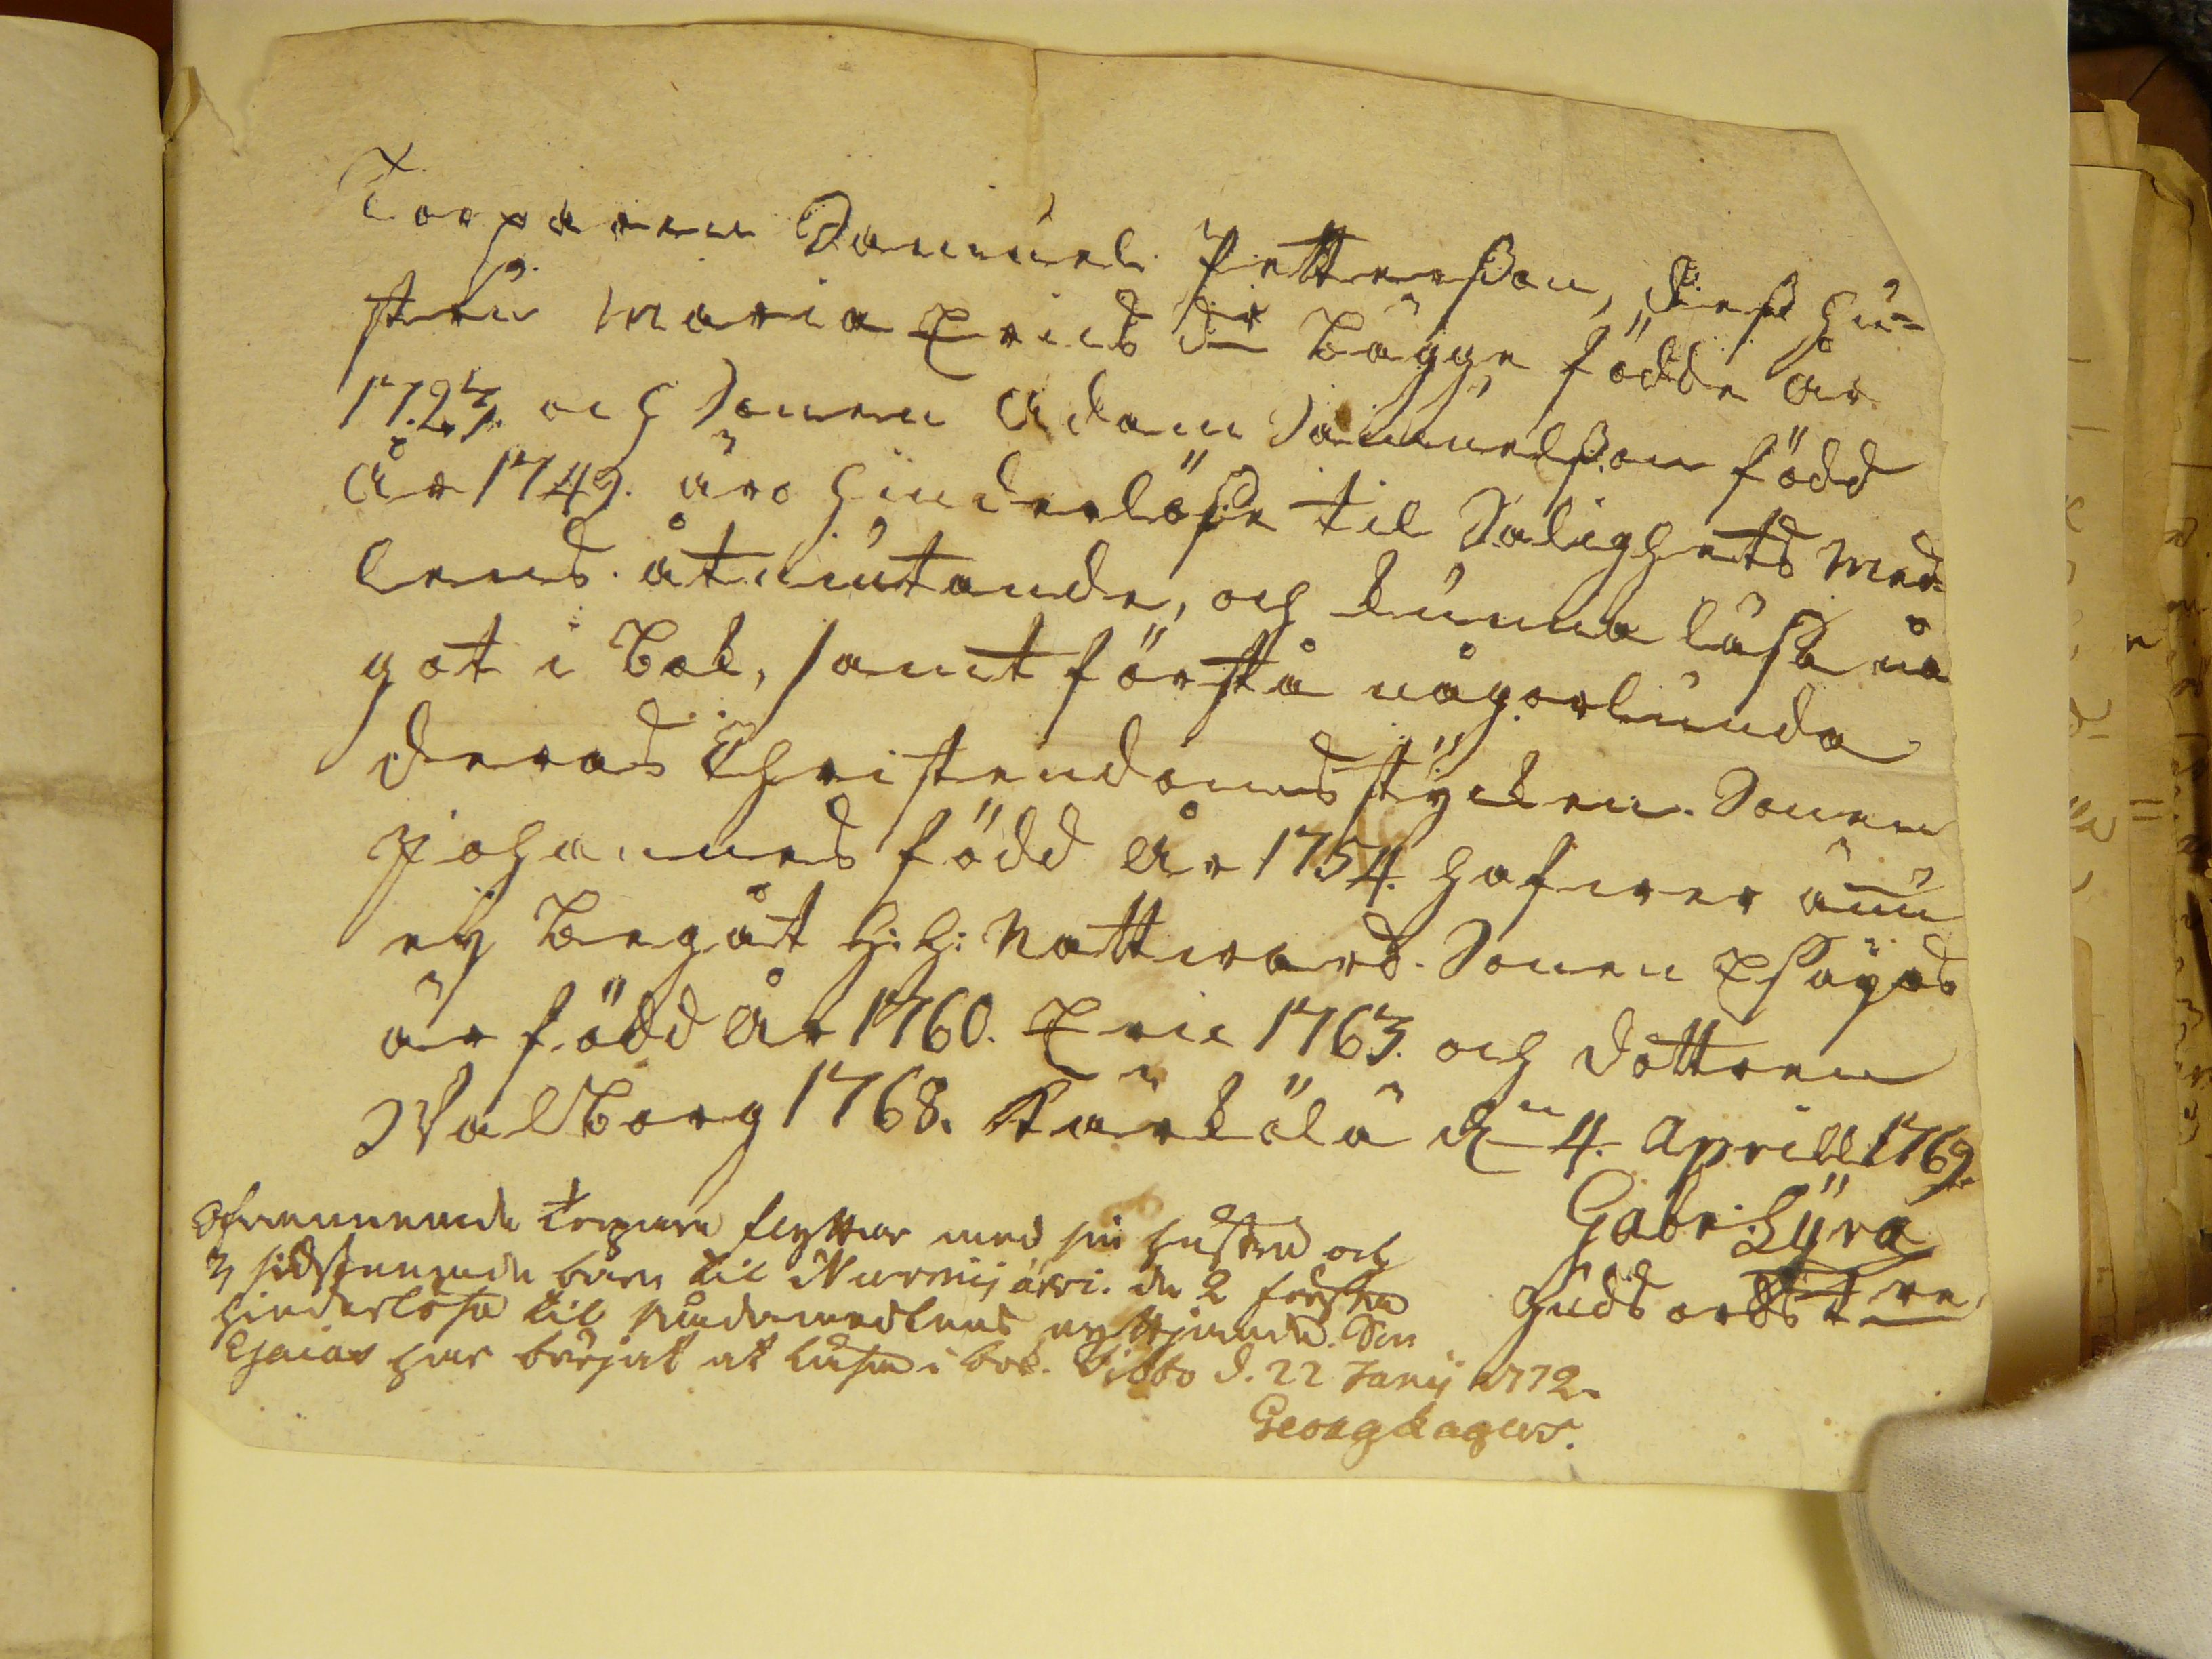 Torparen Samuel Pettersson, dess hu-
stru Maria Ericsdr bägge födde år
1727. och Sonen Adam Samuelsson född
År 1749. äro hinderlöse til Salighets med-
lens åtniutande, och kunna läsa nå
got i bok, samt förstå någorlunda
deras Christendoms stycken. Sonen
Johannes född år 1754. hafwer ännu
ej begåt H: H: Nattward. Sonen Esajas
är född år 1760. Eric 1763. och dottren
Walborg 1768. Kärkölä dn 4. Aprill 1769.
Gabr: Lyra
Guds ords t re
Ofwannemde Torpare flyttar med sin hustru och
3 sidstnemde barn til Nurmijärvi. de 2 förstn
hinderlösa til nådemedlens nyttjande. Son
Esaias har börjat at läsa i bok. Sibbo d. 22 Janij 1772.
Georg